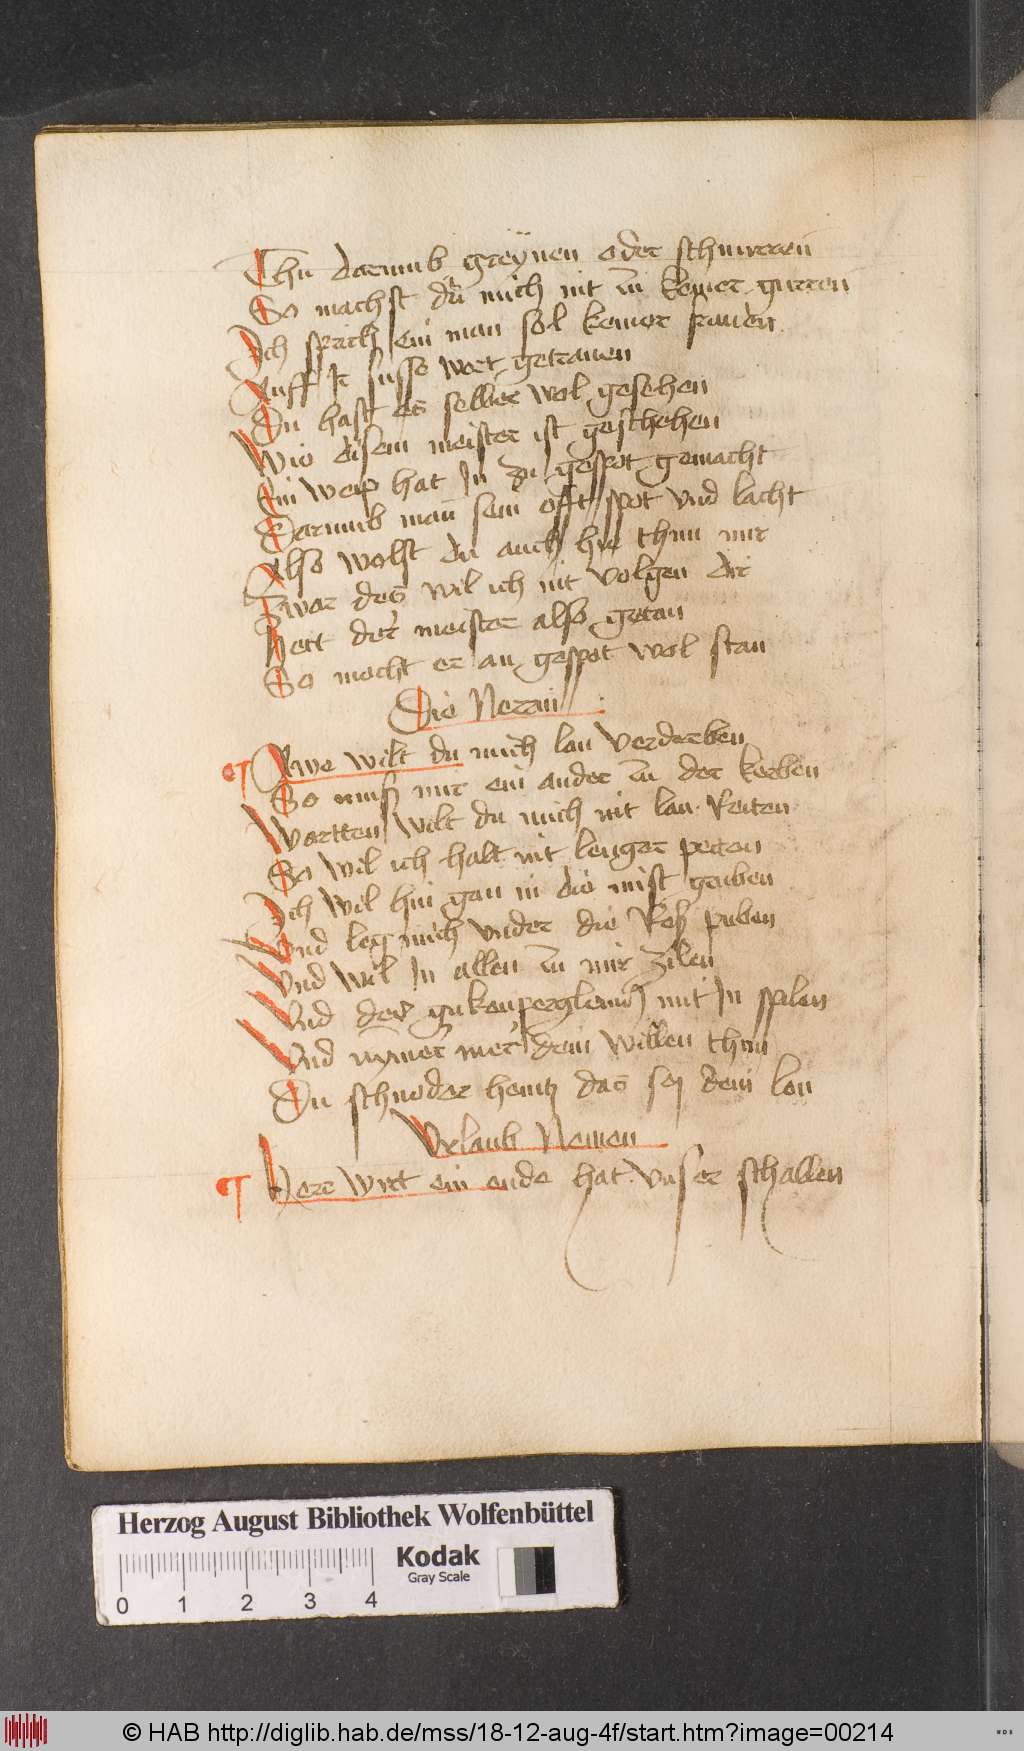 Thu darumb greÿnen oder schnurren
So machst du mich nit zu keiner gurren
Ich sprich ein man sol keiner frauen
Auff Ir susse wort getrauen
Du hast es selber wol gesehen
Wie disem meister ist geschehen
Ein weip hat In zu gespot gemacht
Darumb man sein offt spot vnd lacht
Also wolst du auch hie thun mir
Zwar des wil ich nit volgen dir
Hett der meister also getan
So mocht er an gespot wol stan
Die Nerrin
Awe wilt du mich lan verderben
So muß mir ein ander zu der kerben
Wartten wilt du mich nit lan Reiten
So wil ich halt nit lenger peiten
Ich wil hin gan in die mist gruben
Vnd leg mich vnder die Roß puben
Vnd wil In allen zu mir zilen
Vnd der gukenperglein mit In spilen
Vnd nÿmer mer dein willen thun
Du schnoder heintz das sej dein lon
Vrlaub Nemen
Herr wirt ein ende hat vnser schallen
Herzog August Bibliothek Wolfenbüttel
Kodak
Gray Scale
0 1 2 3 4
© HAB http://diglib.hab.de/mss/18-12-aug-4f/start.htm?image=00214